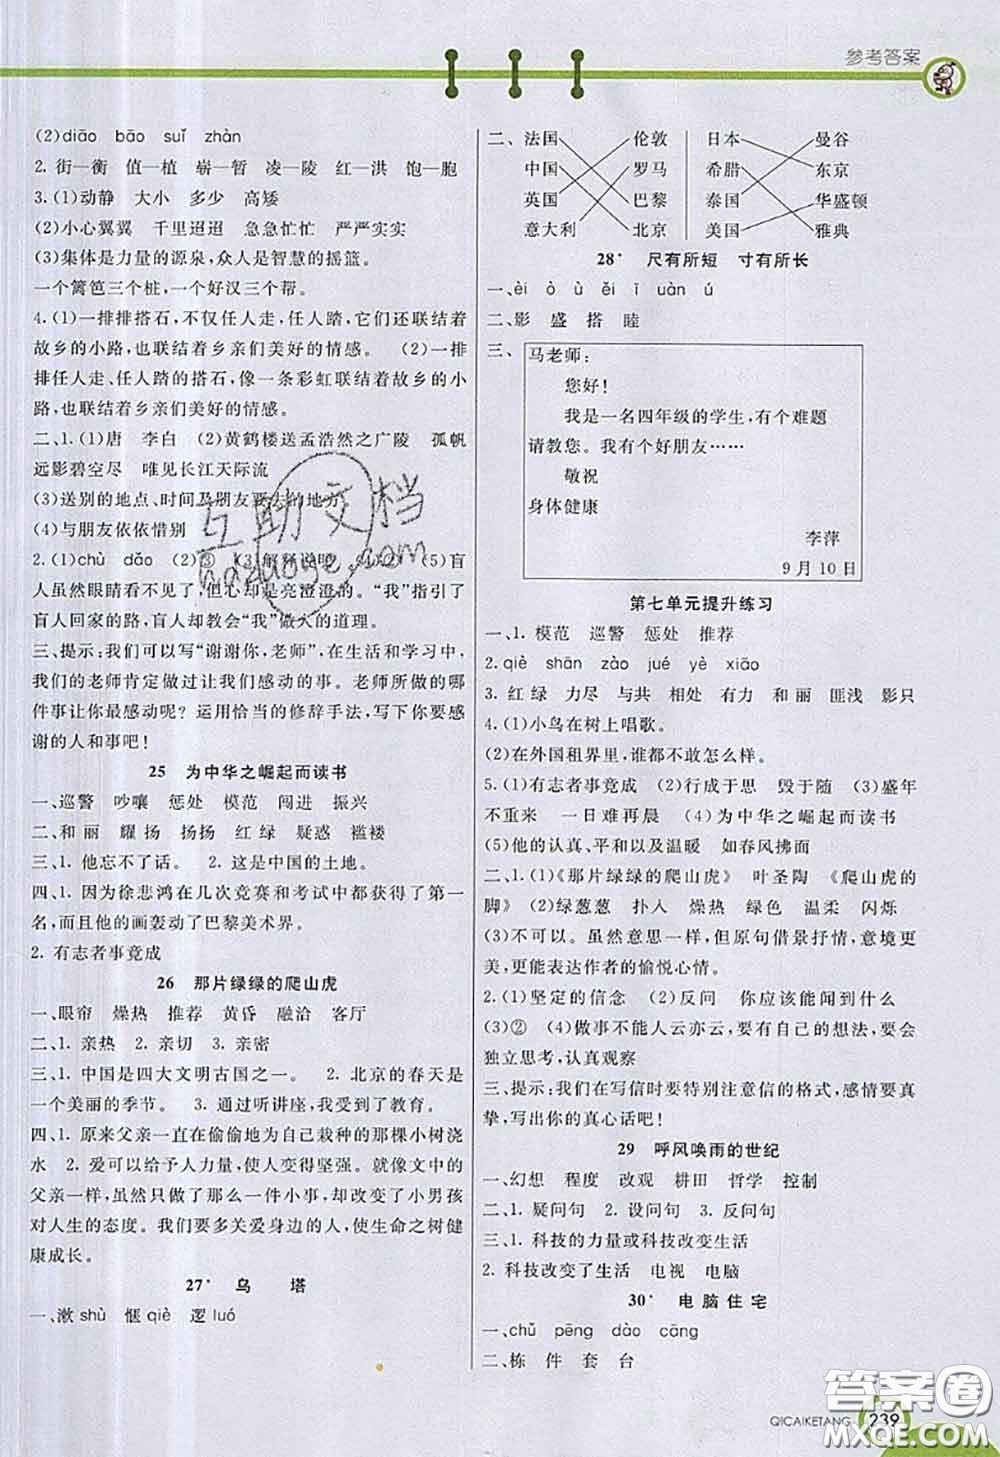 参考答案
(2)diāo bāo suǐ zhàn
2. 街—衡 值—植 崭—暂 凌—陵 红—洪 饱—胞
3.(1)动静 大小 多少 高矮
(2)小心翼翼 千里迢迢 急急忙忙 严严实实
(3)集体是力量的源泉,众人是智慧的摇篮。
一个篱笆三个桩,一个好汉三个帮。
4.(1)一排排搭石,不仅任人走,任人踏,它们还联结着
故乡的小路,也联结着乡亲们美好的情感。 (2)一排
排任人走、任人踏的搭石,像一条彩虹联结着故乡的小
路,也联结着乡亲们美好的情感。
二、1.(1)唐 李白 (2)黄鹤楼送孟浩然之广陵 孤帆
远影碧空尽 唯见长江天际流
(3)送别的地点、时间及朋友要去的地方
(4)与朋友依依惜别
2.(1)chù dǎo (2)③ (3)解释说明 (5)盲
人虽然眼睛看不见,但心却是亮澄澄的。“我”感激
盲人回家的路,盲人却使“我”做人的道理。
三、提示:我们可以写“谢谢你,老师”,在生活和学习中,
我们的老师肯定做过让我们感动的事。老师所做的哪
件事让你最感动呢?运用恰当的修辞手法,写下你要感
谢的人和事吧!
25 为中华之崛起而读书
一、巡警 吵嚷 惩处 模范 闯进 振兴
二、和 丽 耀 扬 扬扬 红 绿 疑惑 褴褛
三、1. 他忘不了话。 2. 这是中国的土地。
四、1. 因为徐悲鸿在几次竞赛和考试中都获得了第一
名,而且他的画轰动了巴黎美术界。
2. 有志者事竟成
26 那片绿绿的爬山虎
一、眼帘 燥热 推荐 黄昏 融洽 客厅
二、1. 亲热 2. 亲切 3. 亲密
三、1. 中国是四大文明古国之一。 2. 北京的春天是
一个美丽的季节。 3. 通过听讲座,我受到了教育。
四、1. 原来父亲一直在偷偷地为自己栽种的那棵小树浇
水 2. 爱可以给予人力量,使人变得坚强。就像文中的
父亲一样,虽然只做了那么一件小事,却改变了小男孩
对人生的态度。我们要多关爱身边的人,使生命之树健
康成长。
27* 乌 塔
一、漱 shù 惬 qiè 逻 luó
二、法国 伦敦 日本 曼谷
中国 罗马 希腊 东京
英国 巴黎 泰国 华盛顿
意大利 北京 美国 雅典
28* 尺有所短 寸有所长
一、èi ò ù ěi ī uàn ú
二、影 盛 搭 睦
三、 马老师:
您好!
我是一名四年级的学生,有个难题
请教您。我有个好朋友……
敬祝
身体健康
李萍
9月10日
第七单元提升练习
一、1. 模范 巡警 惩处 推荐
2.qiè shān zào jué yè xiāo
3. 红 绿 力尽 与共 相处 有力 和 丽 匪浅 影只
4.(1)小鸟在树上唱歌。
(2)在外国租界里,谁都不敢怎么样。
5.(1)有志者事竟成 (2)行成于思 毁于随 (3)盛年
不重来 一日难再晨 (4)为中华之崛起而读书
(5)他的认真、平和以及温暖 如春风拂面
二、1.(1)《那片绿绿的爬山虎》 叶圣陶 《爬山虎的
脚》 (2)绿葱葱 扑人 燥热 绿色 温柔 闪烁
(3)不可以。虽然意思一样,但原句借景抒情,意境更
美,更能表达作者的愉悦心情。
2.(1)坚定的信念 (2)反问 你应该能闻到什么
(3)② (4)做事不能人云亦云,要有自己的想法,要会
独立思考,认真观察
三、提示:我们在写信时要特别注意信的格式,感情要真
挚,写出你的真心话吧!
29 呼风唤雨的世纪
一、幻想 程度 改观 耕田 哲学 控制
二、1. 疑问句 2. 设问句 3. 反问句
三、1. 科技的力量或科技改变生活
2. 科技改变了生活 电视 电脑
30* 电脑住宅
一、chǔ pēng dào cāng
二、栋 件 套 台
QICAIKETANG 239
互助文档
hdzuoye.com
答案圈
MXQE.COM